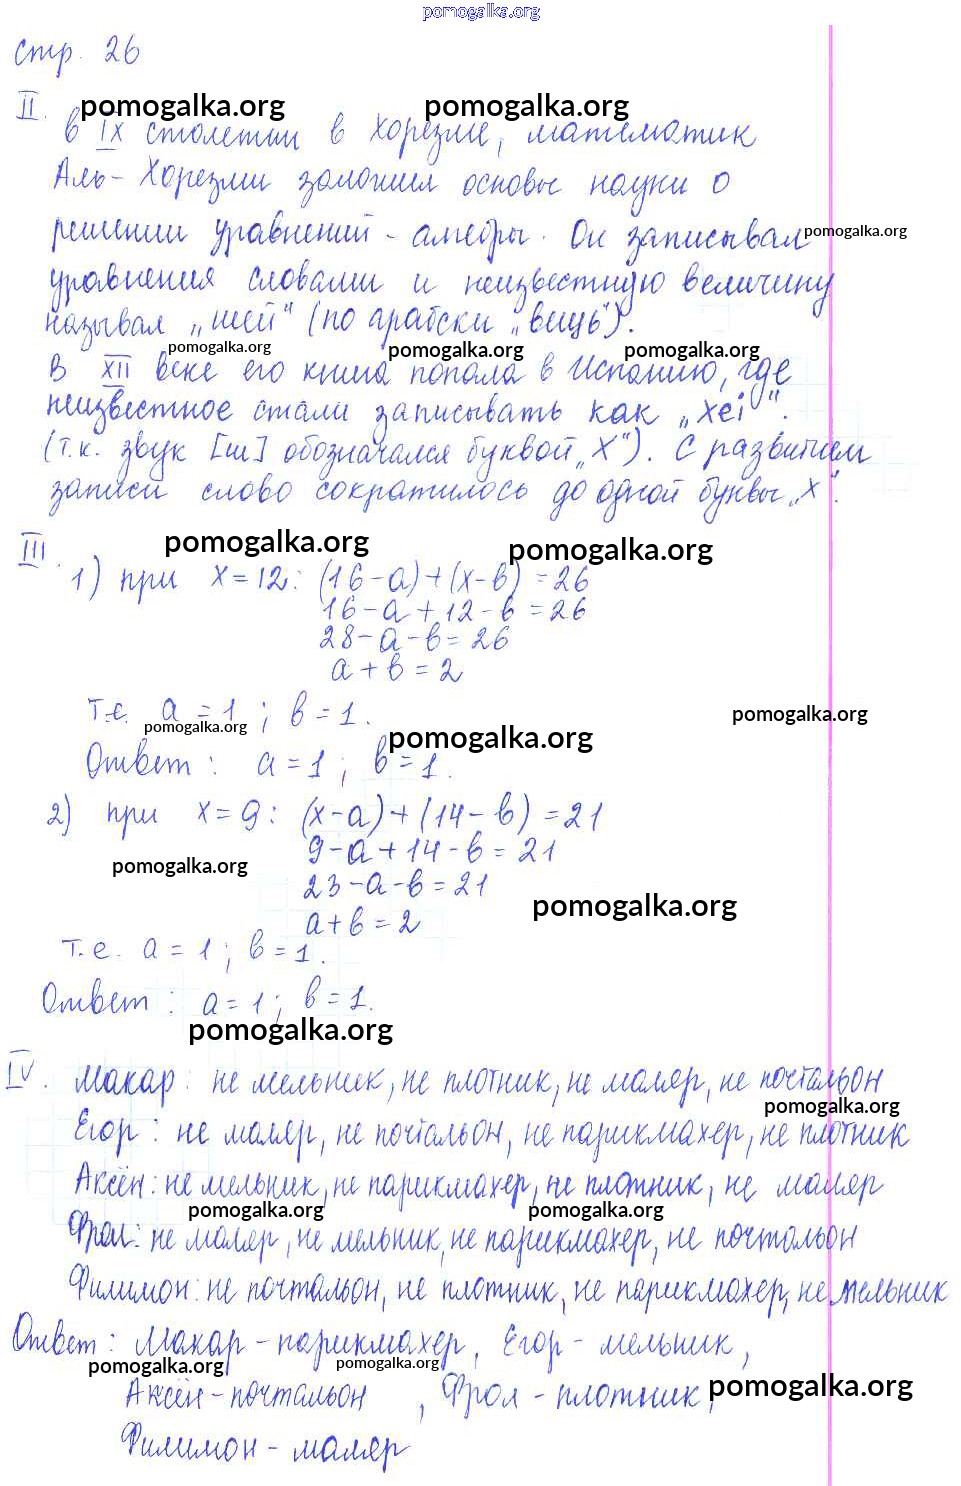 pomogalka.org
стр. 26
II. pomogalka.org pomogalka.org
В IX столетии в Хорезме, математик
Аль-Хорезми заложил основы науки о
решении уравнений - алгебры. Он записывал pomogalka.org
уравнения словами и неизвестную величину
называл „шей" (по арабски „вещь").
pomogalka.org pomogalka.org pomogalka.org
В XII веке его книга попала в Испанию, где
неизвестное стали записывать как „хei".
(т.к. звук [ш] обозначался буквой „X"). С развитием
записи слово сократилось до одной буквы „x".
III. pomogalka.org pomogalka.org
1) при x=12: (16-a)+(x-b)=26
16-a+12-b=26
28-a-b=26
a+b=2
т.е. a=1; b=1. pomogalka.org
pomogalka.org pomogalka.org
Ответ: a=1; b=1.
2) при x=9: (x-a)+(14-b)=21
9-a+14-b=21
pomogalka.org
23-a-b=21
pomogalka.org
a+b=2
т.е. a=1; b=1.
Ответ: a=1; b=1.
pomogalka.org
IV. Макар: не мельник, не плотник, не маляр, не почтальон
pomogalka.org
Егор: не маляр, не почтальон, не парикмахер, не плотник
Аксён: не мельник, не парикмахер, не плотник, не маляр
pomogalka.org pomogalka.org
Фрол: не маляр, не мельник, не парикмахер, не почтальон
Филимон: не почтальон, не плотник, не парикмахер, не мельник
Ответ: Макар - парикмахер, Егор - мельник,
pomogalka.org pomogalka.org
Аксён - почтальон, Фрол - плотник, pomogalka.org
Филимон - маляр